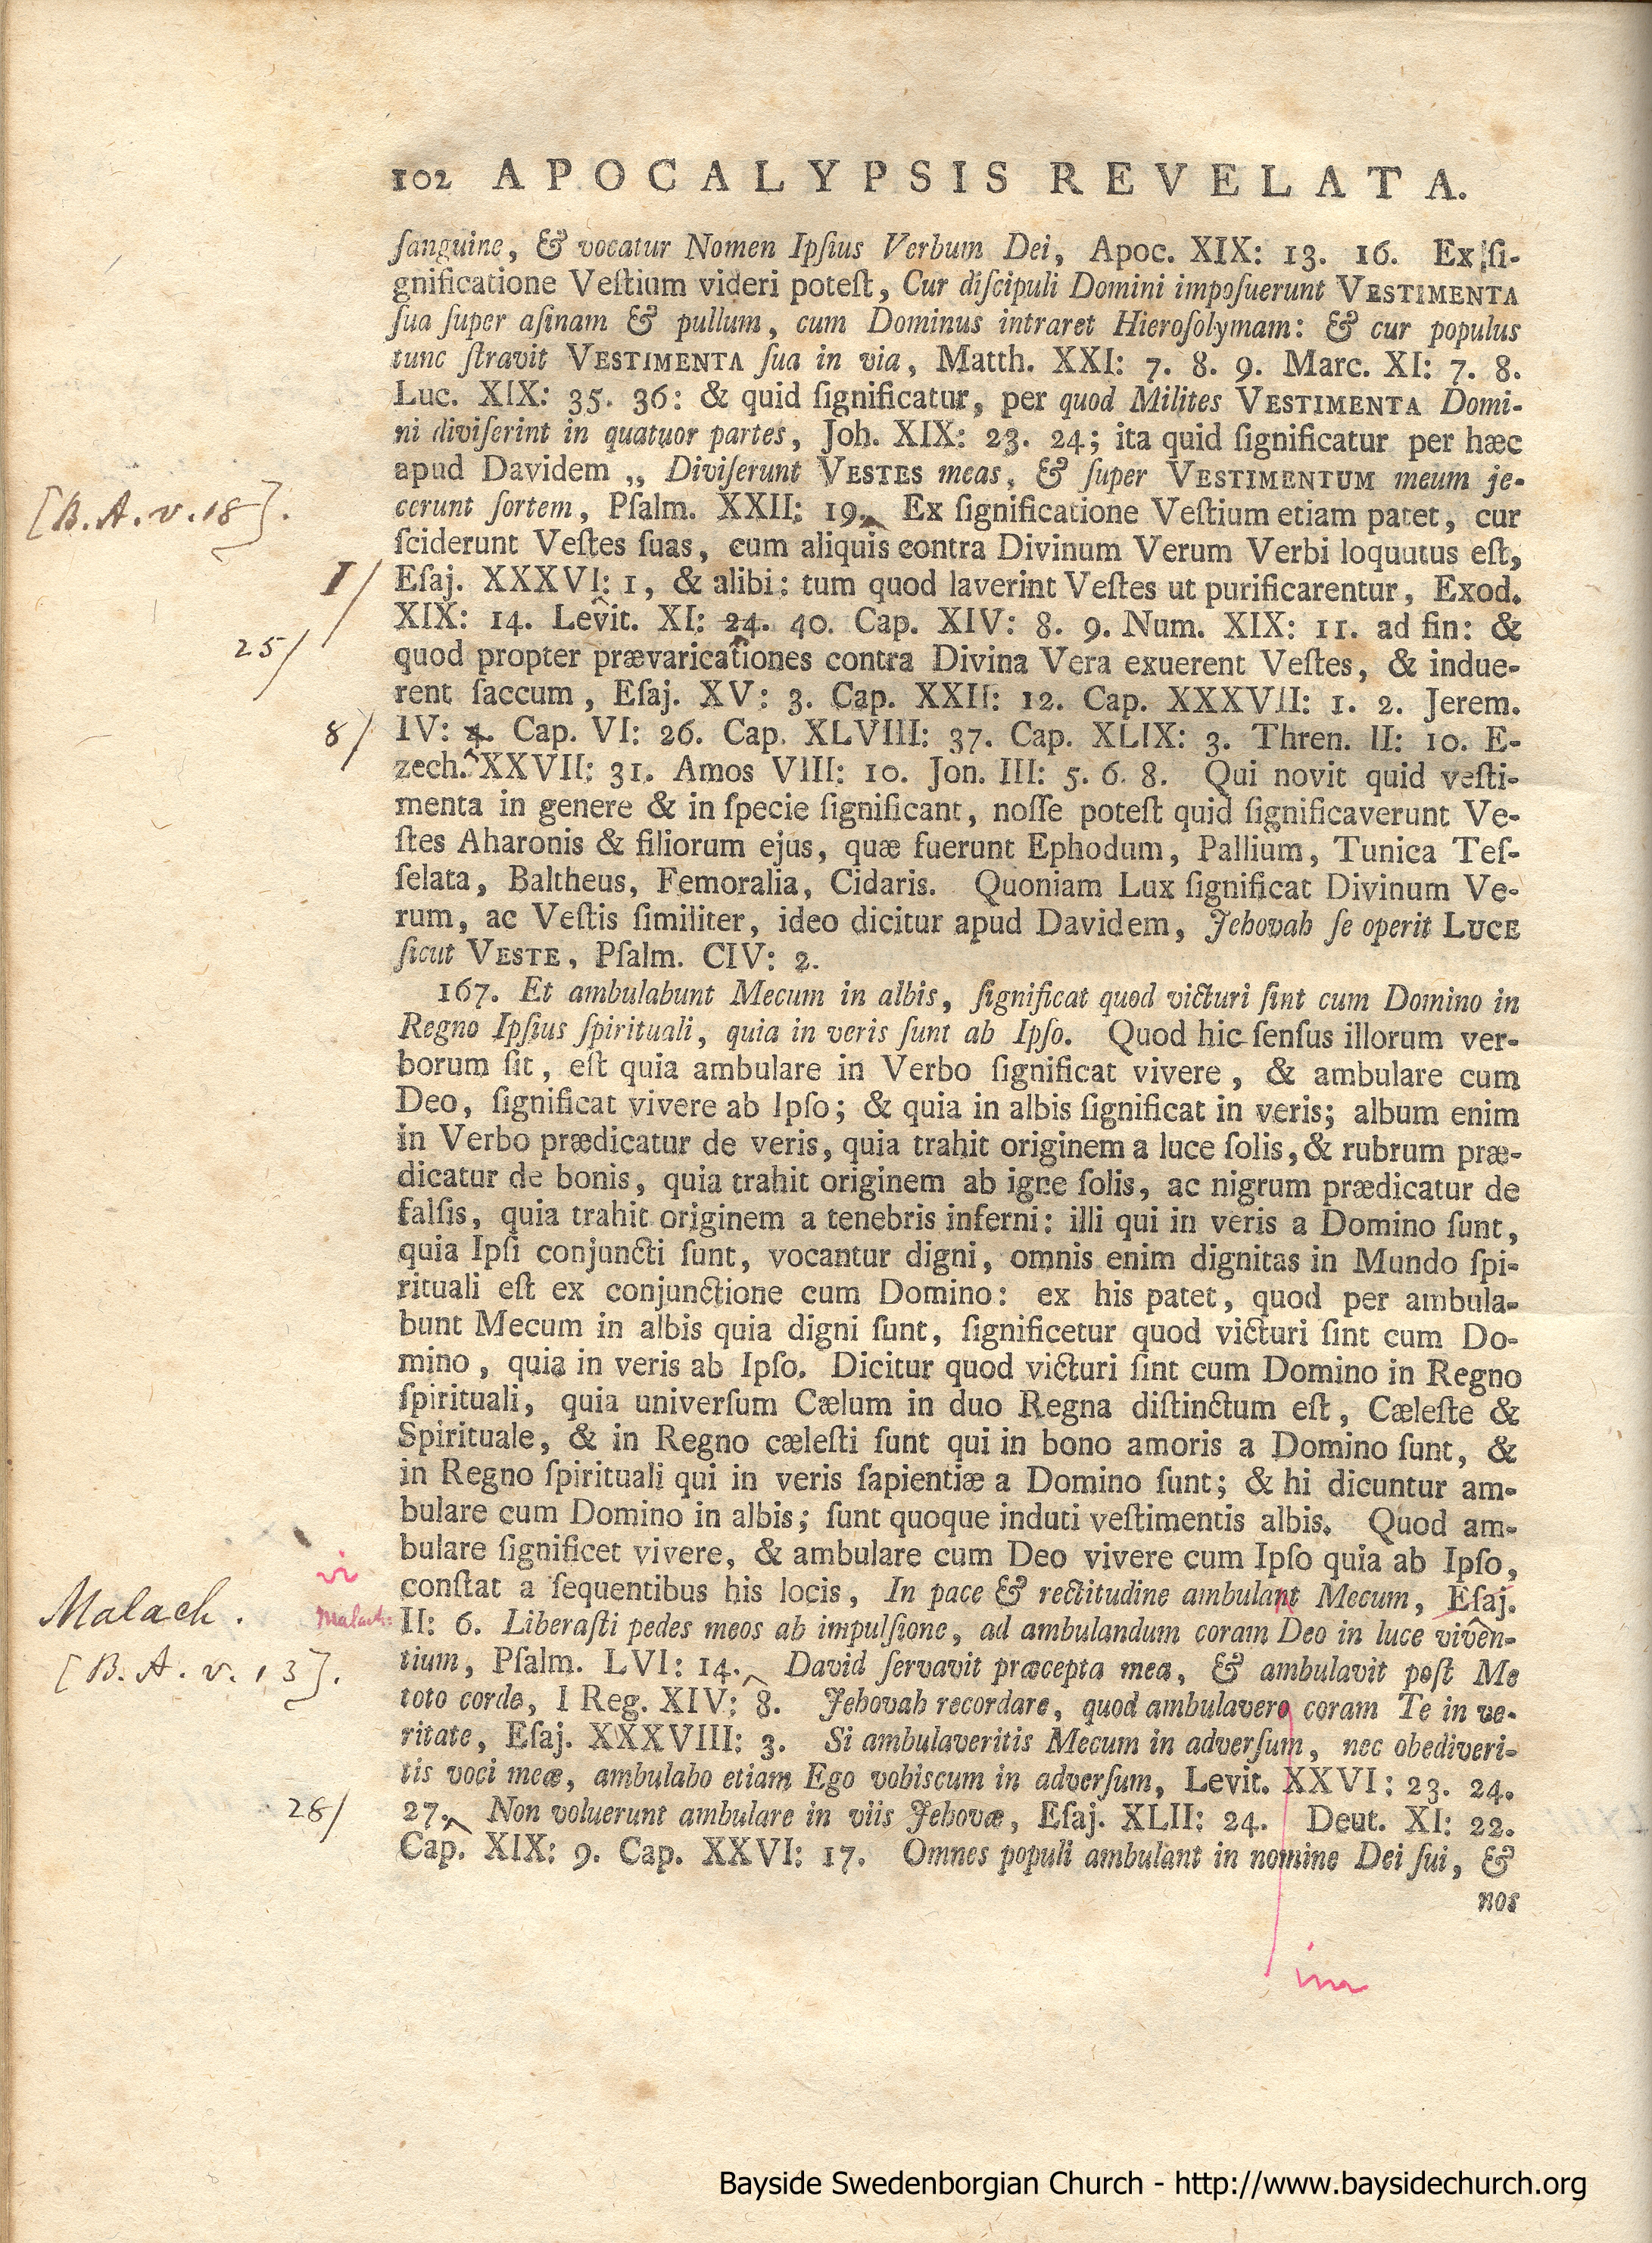 102 APOCALYPSIS REVELATA.
ſanguine, & vocatur Nomen Ipſius Verbum Dei, Apoc. XIX: 13. 16. Ex ſi-
gnificatione Veſtium videri poteſt, Cur diſcipuli Domini impoſuerunt VESTIMENTA
ſua ſuper aſinam & pullum, cum Dominus intraret Hieroſolymam: & cur populus
tunc ſtravit VESTIMENTA ſua in via, Matth. XXI: 7. 8. 9. Marc. XI: 7. 8.
Luc. XIX: 35. 36: & quid ſignificatur, per quod Milites VESTIMENTA Domi-
ni diviſerint in quatuor partes, Joh. XIX: 23. 24; ita quid ſignificatur per hæc
apud Davidem „ Diviſerunt VESTES meas, & ſuper VESTIMENTUM meum je-
[B.A.v.18].
cerunt ſortem, Pſalm. XXII: 19. Ex ſignificatione Veſtium etiam patet, cur
ſciderunt Veſtes ſuas, cum aliquis contra Divinum Verum Verbi loquutus eſt,
I/
Eſaj. XXXVI: 1, & alibi: tum quod laverint Veſtes ut purificarentur, Exod.
XIX: 14. Levit. XI: 24. 40. Cap. XIV: 8. 9. Num. XIX: 11. ad fin: &
25/
quod propter prævaricationes contra Divina Vera exuerent Veſtes, & indue-
rent ſaccum, Eſaj. XV: 3. Cap. XXII: 12. Cap. XXXVII: 1. 2. Jerem.
8/
IV: 4. Cap. VI: 26. Cap. XLVIII: 37. Cap. XLIX: 3. Thren. II: 10. E-
zech. XXVII: 31. Amos VIII: 10. Jon. III: 5. 6. 8. Qui novit quid veſti-
menta in genere & in ſpecie ſignificant, noſſe poteſt quid ſignificaverunt Ve-
ſtes Aharonis & filiorum ejus, quæ fuerunt Ephodum, Pallium, Tunica Teſ-
ſelata, Baltheus, Femoralia, Cidaris. Quoniam Lux ſignificat Divinum Ve-
rum, ac Veſtis ſimiliter, ideo dicitur apud Davidem, Jehovah ſe operit LUCE
ſicut VESTE, Pſalm. CIV: 2.
167. Et ambulabunt Mecum in albis, ſignificat quod victuri ſint cum Domino in
Regno Ipſius ſpirituali, quia in veris ſunt ab Ipſo. Quod hic ſenſus illorum ver-
borum ſit, eſt quia ambulare in Verbo ſignificat vivere, & ambulare cum
Deo, ſignificat vivere ab Ipſo; & quia in albis ſignificat in veris; album enim
in Verbo prædicatur de veris, quia trahit originem a luce ſolis, & rubrum præ-
dicatur de bonis, quia trahit originem ab igne ſolis, ac nigrum prædicatur de
falſis, quia trahit originem a tenebris inferni: illi qui in veris a Domino ſunt,
quia Ipſi conjuncti ſunt, vocantur digni, omnis enim dignitas in Mundo ſpi-
rituali eſt ex conjunctione cum Domino: ex his patet, quod per ambula-
bunt Mecum in albis quia digni ſunt, ſignificetur quod victuri ſint cum Do-
mino, quia in veris ab Ipſo. Dicitur quod victuri ſint cum Domino in Regno
ſpirituali, quia univerſum Cælum in duo Regna diſtinctum eſt, Cæleſte &
Spirituale, & in Regno cæleſti ſunt qui in bono amoris a Domino ſunt, &
in Regno ſpirituali qui in veris ſapientiæ a Domino ſunt; & hi dicuntur am-
bulare cum Domino in albis; ſunt quoque induti veſtimentis albis. Quod am-
bulare ſignificet vivere, & ambulare cum Deo vivere cum Ipſo quia ab Ipſo,
vi
conſtat a ſequentibus his locis, In pace & rectitudine ambulant Mecum, Eſaj.
Malach.
Malach:
II: 6. Liberaſti pedes meos ab impulſione, ad ambulandum coram Deo in luce viven-
[B.A.v.13].
tium, Pſalm. LVI: 14. David ſervavit præcepta mea, & ambulavit poſt Me
toto corde, I Reg. XIV: 8. Jehovah recordare, quod ambulavero coram Te in ve-
ritate, Eſaj. XXXVIII: 3. Si ambulaveritis Mecum in adverſum, nec obediveri-
tis voci meæ, ambulabo etiam Ego vobiscum in adverſum, Levit. XXVI: 23. 24.
28/
27. Non voluerunt ambulare in viis Jehovæ, Eſaj. XLII: 24. Deut. XI: 22.
Cap. XIX: 9. Cap. XXVI: 17. Omnes populi ambulant in nomine Dei ſui, &
nos
im
Bayside Swedenborgian Church - http://www.baysidechurch.org